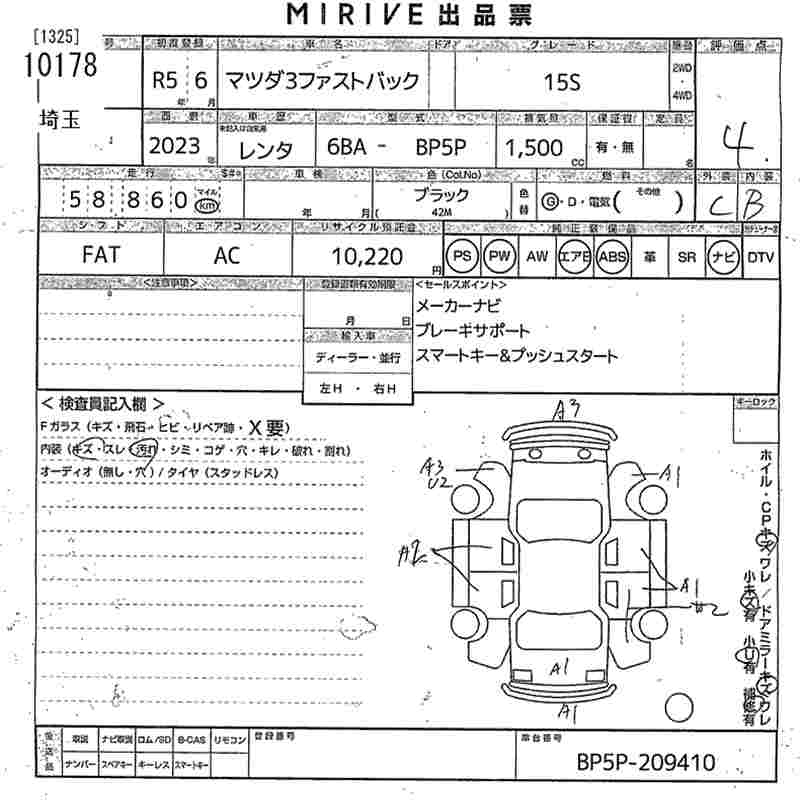 MIRIVE出品票
[1325]
号 初度登録 車名 ドア グレード 駆動 評価点
10178
R5 6 マツダ3ファストバック 15S 2WD・4WD
年 月
埼玉
年式 車歴 型式 排気量 保証書 定員
未記入は自家用
2023 年 レンタ 6BA - BP5P 1,500 CC 有・無 名
4.
走行 車検 色(Col.No) 燃料 外装 内装
58860 マイル km 年 月 ブラック 色替 G・D・電気( その他 ) C B
( 42M )
シフト エアコン リサイクル預託金 純正装備品
FAT AC 10,220 円 PS PW AW エアB ABS 革 SR ナビ DTV
<注意事項> 登録書類有効期限 <セールスポイント>
月 日
メーカーナビ
輸入車
ブレーキサポート
ディーラー・並行
スマートキー&プッシュスタート
左H ・ 右H
< 検査員記入欄 >
キーロック
Fガラス (キズ・飛石・ヒビ・リペア跡・X要)
内装 (キズ・スレ・汚れ・シミ・コゲ・穴・キレ・破れ・割れ)
オーディオ (無し・穴) / タイヤ (スタッドレス)
A3
A3
U2
A1
A2
A1
W2
A1
A1
ホイル・CPキズワレ / ドアミラーキズワレ
小キズ有 小U有 補修有
後送品 取説 ナビ取説 ロム/SD B-CAS リモコン 登録番号 車台番号
ナンバー スペアキー キーレス スマートキー
BP5P-209410